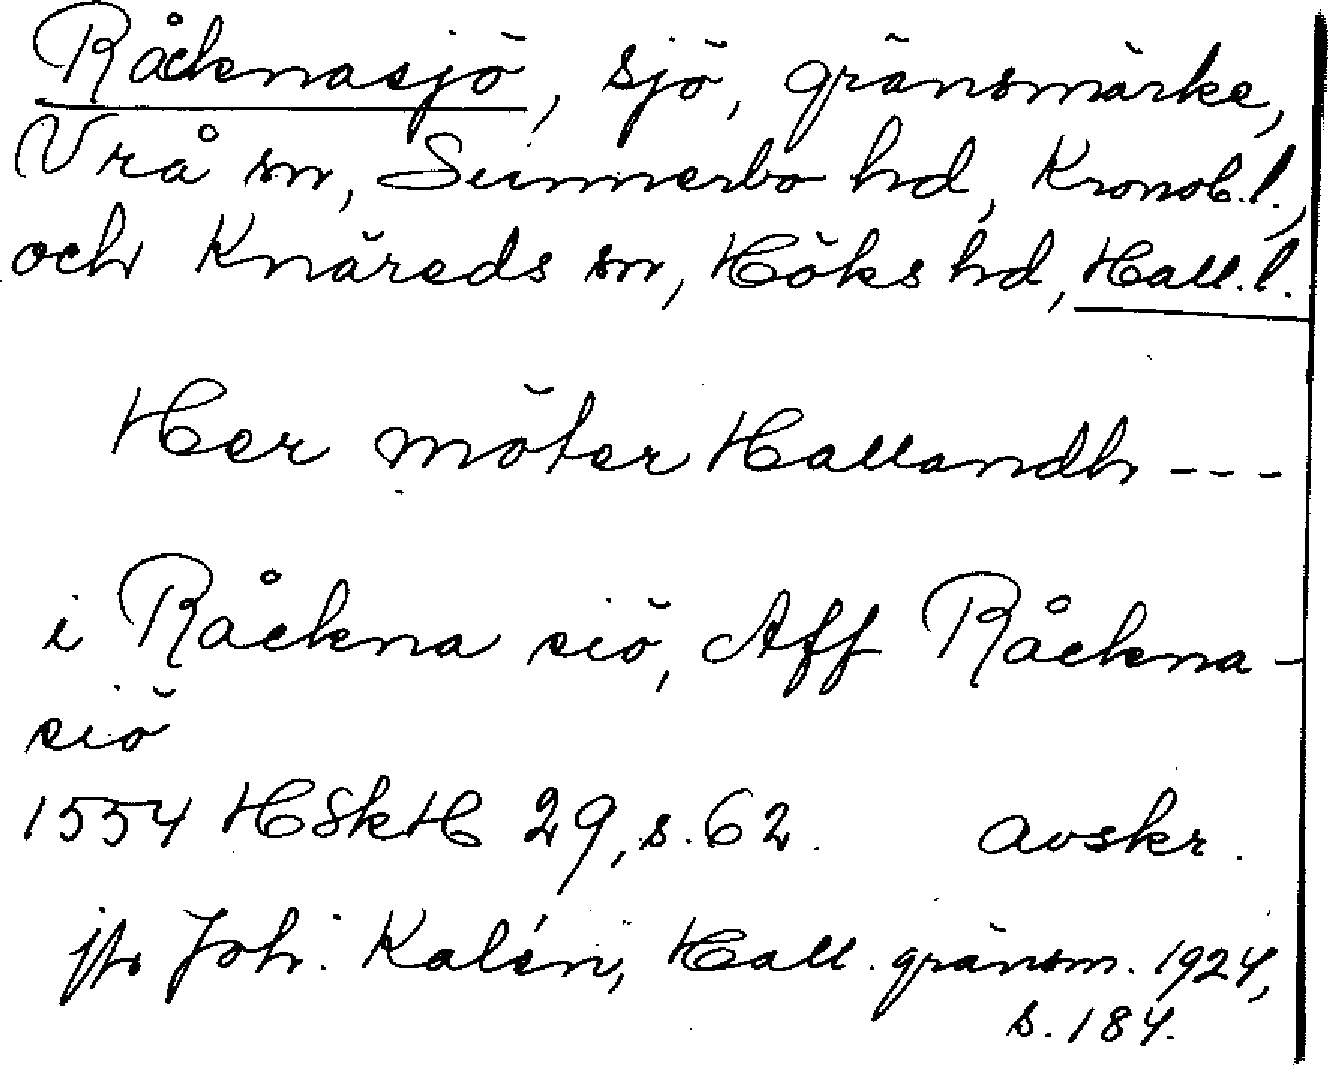 Råcknasjö, sjö, gränsmärke,
Vrå sn, Sunnerbo hd, Kronob.l.,
och Knäreds sn, Höks hd, Hall.l.
Her möter Hallandh ---
i Råckna siö, Aff Råckna-
siö
1554 HSkH 29, s. 62. avskr.
jfr Joh. Kalén, Hall. gränsm. 1924,
s. 184.